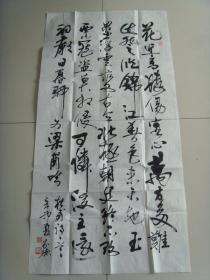 花近高樓傷客心萬方多難
此登临錦江春色来天地玉
壘浮雲变古今北極朝廷終不改
西山寇盗莫相侵可憐後主還
祠廟日暮聊为梁甫吟